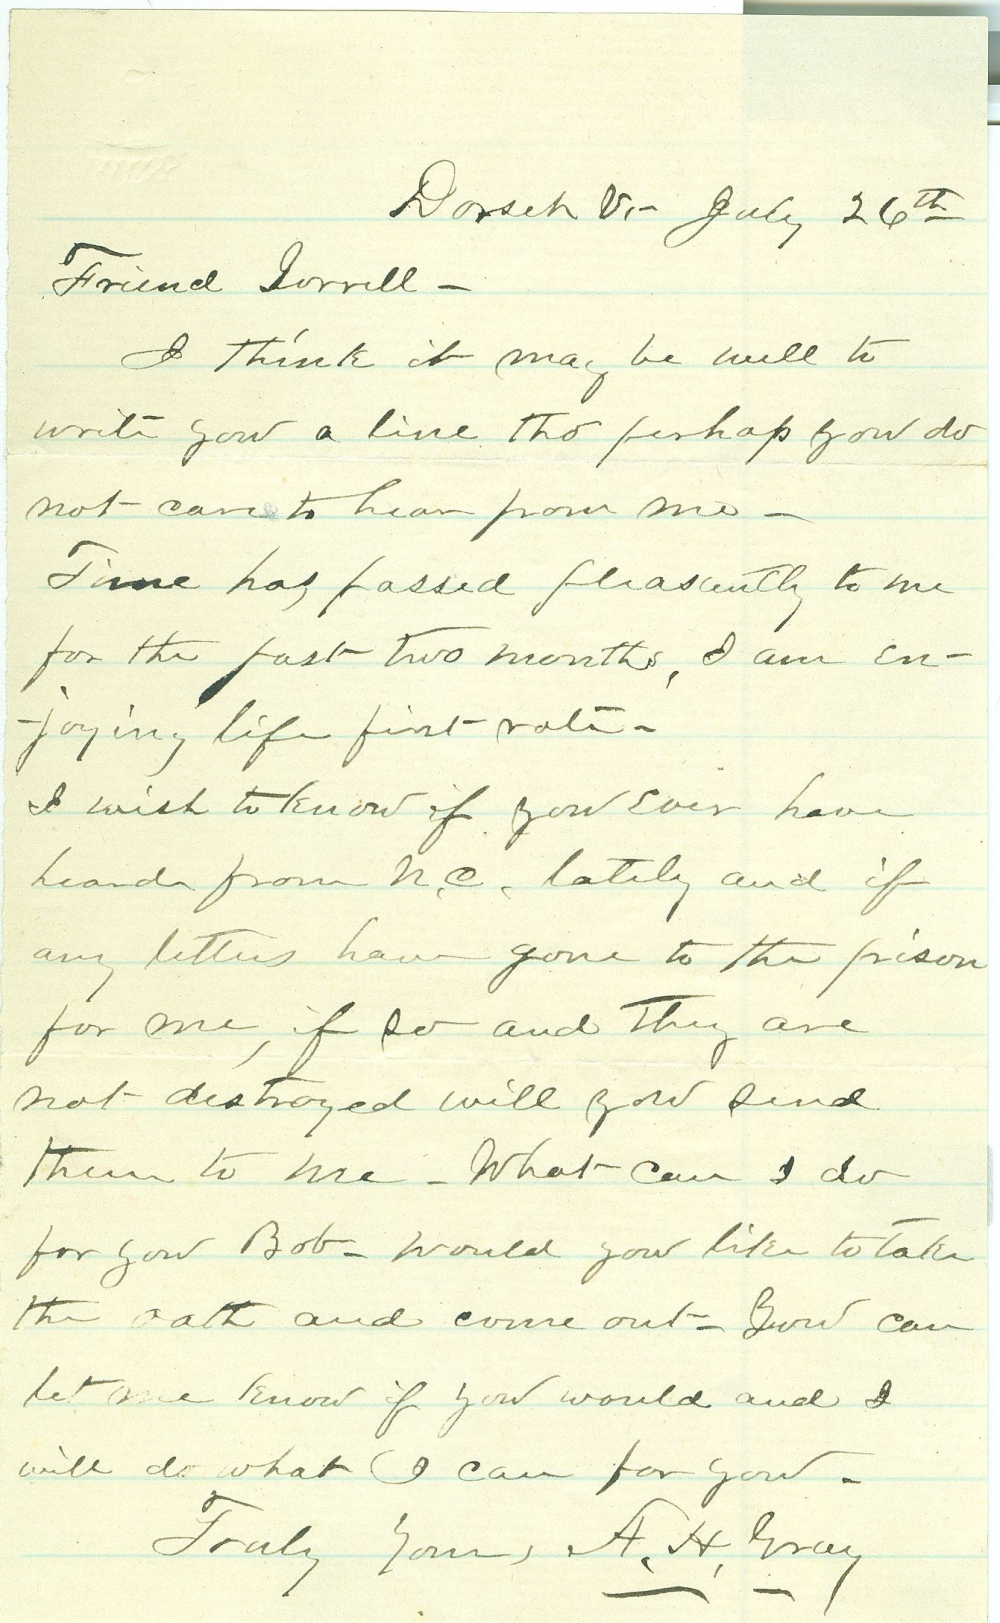 Dorset Vt- July 26th
Friend Jorrell -
I think it may be well to
write you a line tho perhap you do
not care to hear from me -
Time has passed pleasantly to me
for the past two months, I am en-
-joying life first rate -
I wish to know if you ever have
heard from N.C. lately and if
any letters have gone to the prison
for me, if so and they are
not destroyed will you send
them to me - What can I do
for you Bob - would you like to take
the oath and come out - You can
let me know if you would and I
will do what I can for you -
Truly Yours, A. H. Gray